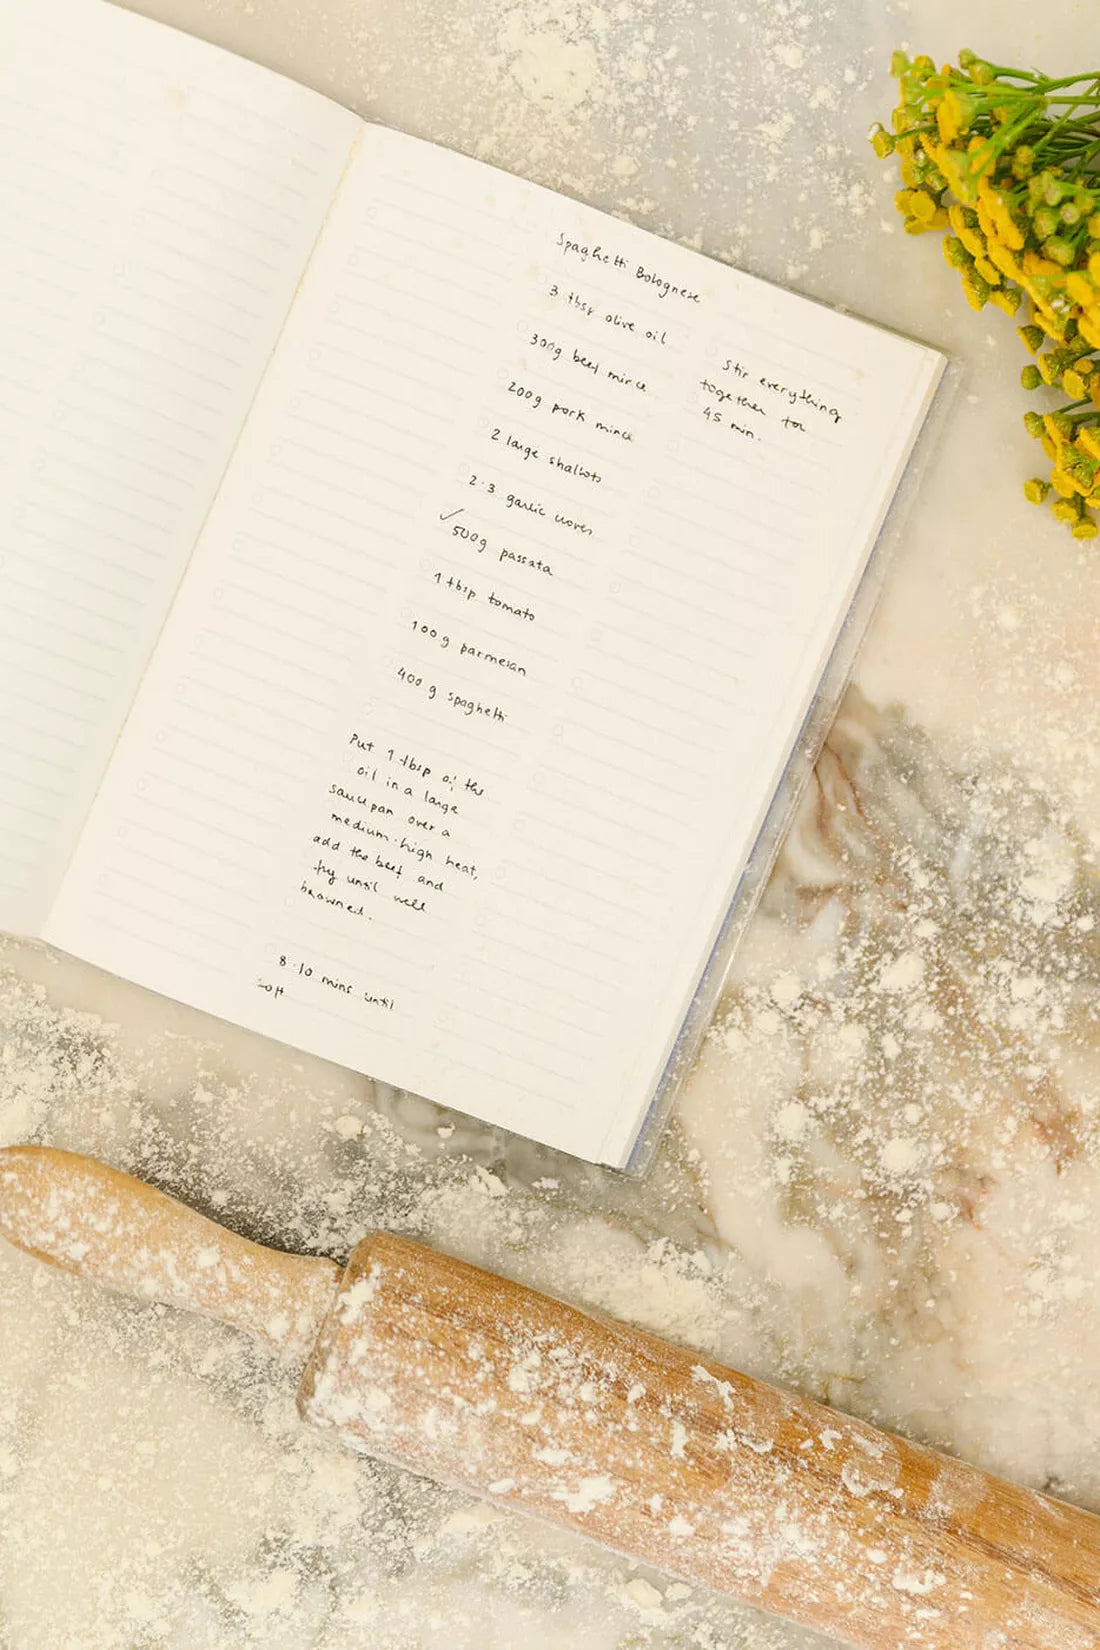 Spaghetti Bolognese
3 tbsp olive oil
300g beef mince
200g pork mince
2 large shallots
2-3 garlic cloves
✓500g passata
1 tbsp tomato
100g parmesan
400g spaghetti
Put 1 tbsp of the
oil in a large
saucepan over a
medium-high heat,
add the beef and
fry until well
browned.
8-10 mins until
soft
Stir everything
together for
45 min.